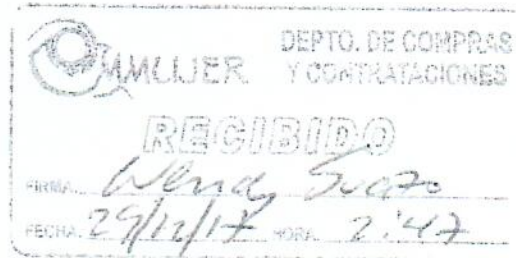 MUJER DEPTO. DE COMPRAS
Y CONTRATACIONES
RECIBIDO
FIRMA. Wendy Suazo
FECHA. 29/12/17 HORA. 2:47